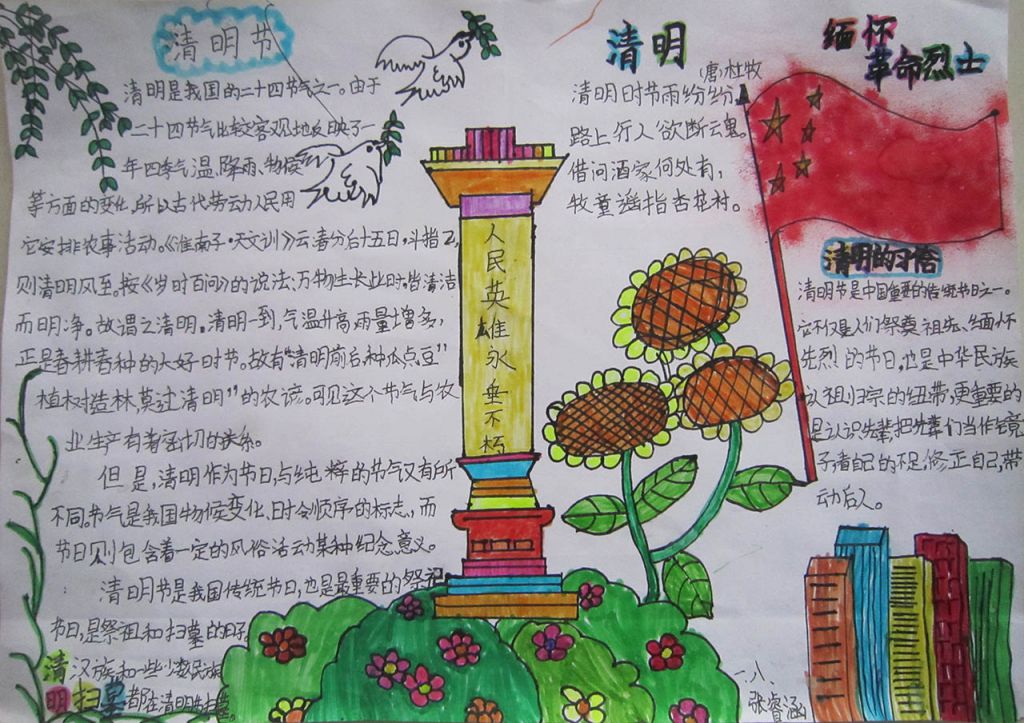 清明节
清明是我国的二十四节气之一。由于
二十四节气比较客观地反映了一
年四季气温、降雨、物候
等方面的变化,所以古代劳动人民用
它安排农事活动。《淮南子·天文训》云:春分后十五日,斗指乙,
则清明风至。按《岁时百问》的说法:万物生长此时,皆清洁
而明净。故谓之清明。清明一到,气温升高,雨量增多,
正是春耕春种的大好时节。故有“清明前后,种瓜点豆”
植树造林,莫过清明”的农谚。可见这个节气与农
业生产有着密切的关系。
但是,清明作为节日,与纯粹的节气又有所
不同。节气是我国物候变化、时令顺序的标志,而
节日则包含着一定的风俗活动某种纪念意义。
清明节是我国传统节日,也是最重要的祭祀
节日,是祭祖和扫墓的日子。
汉族和一些少数民族
都在清明节扫墓。
清
明扫墓
人民英雄永垂不朽
清明
(唐)杜牧
清明时节雨纷纷,
路上行人欲断魂。
借问酒家何处有,
牧童遥指杏花村。
缅怀
革命烈士
清明的习俗
清明节是中国重要的传统节日之一。
它不仅是人们祭奠祖先、缅怀
先烈的节日,也是中华民族
认祖归宗的纽带,更重要的
是认识先辈,把先辈们当作镜
子看自己的不足,修正自己,带
动后人。
一、八
张睿涵